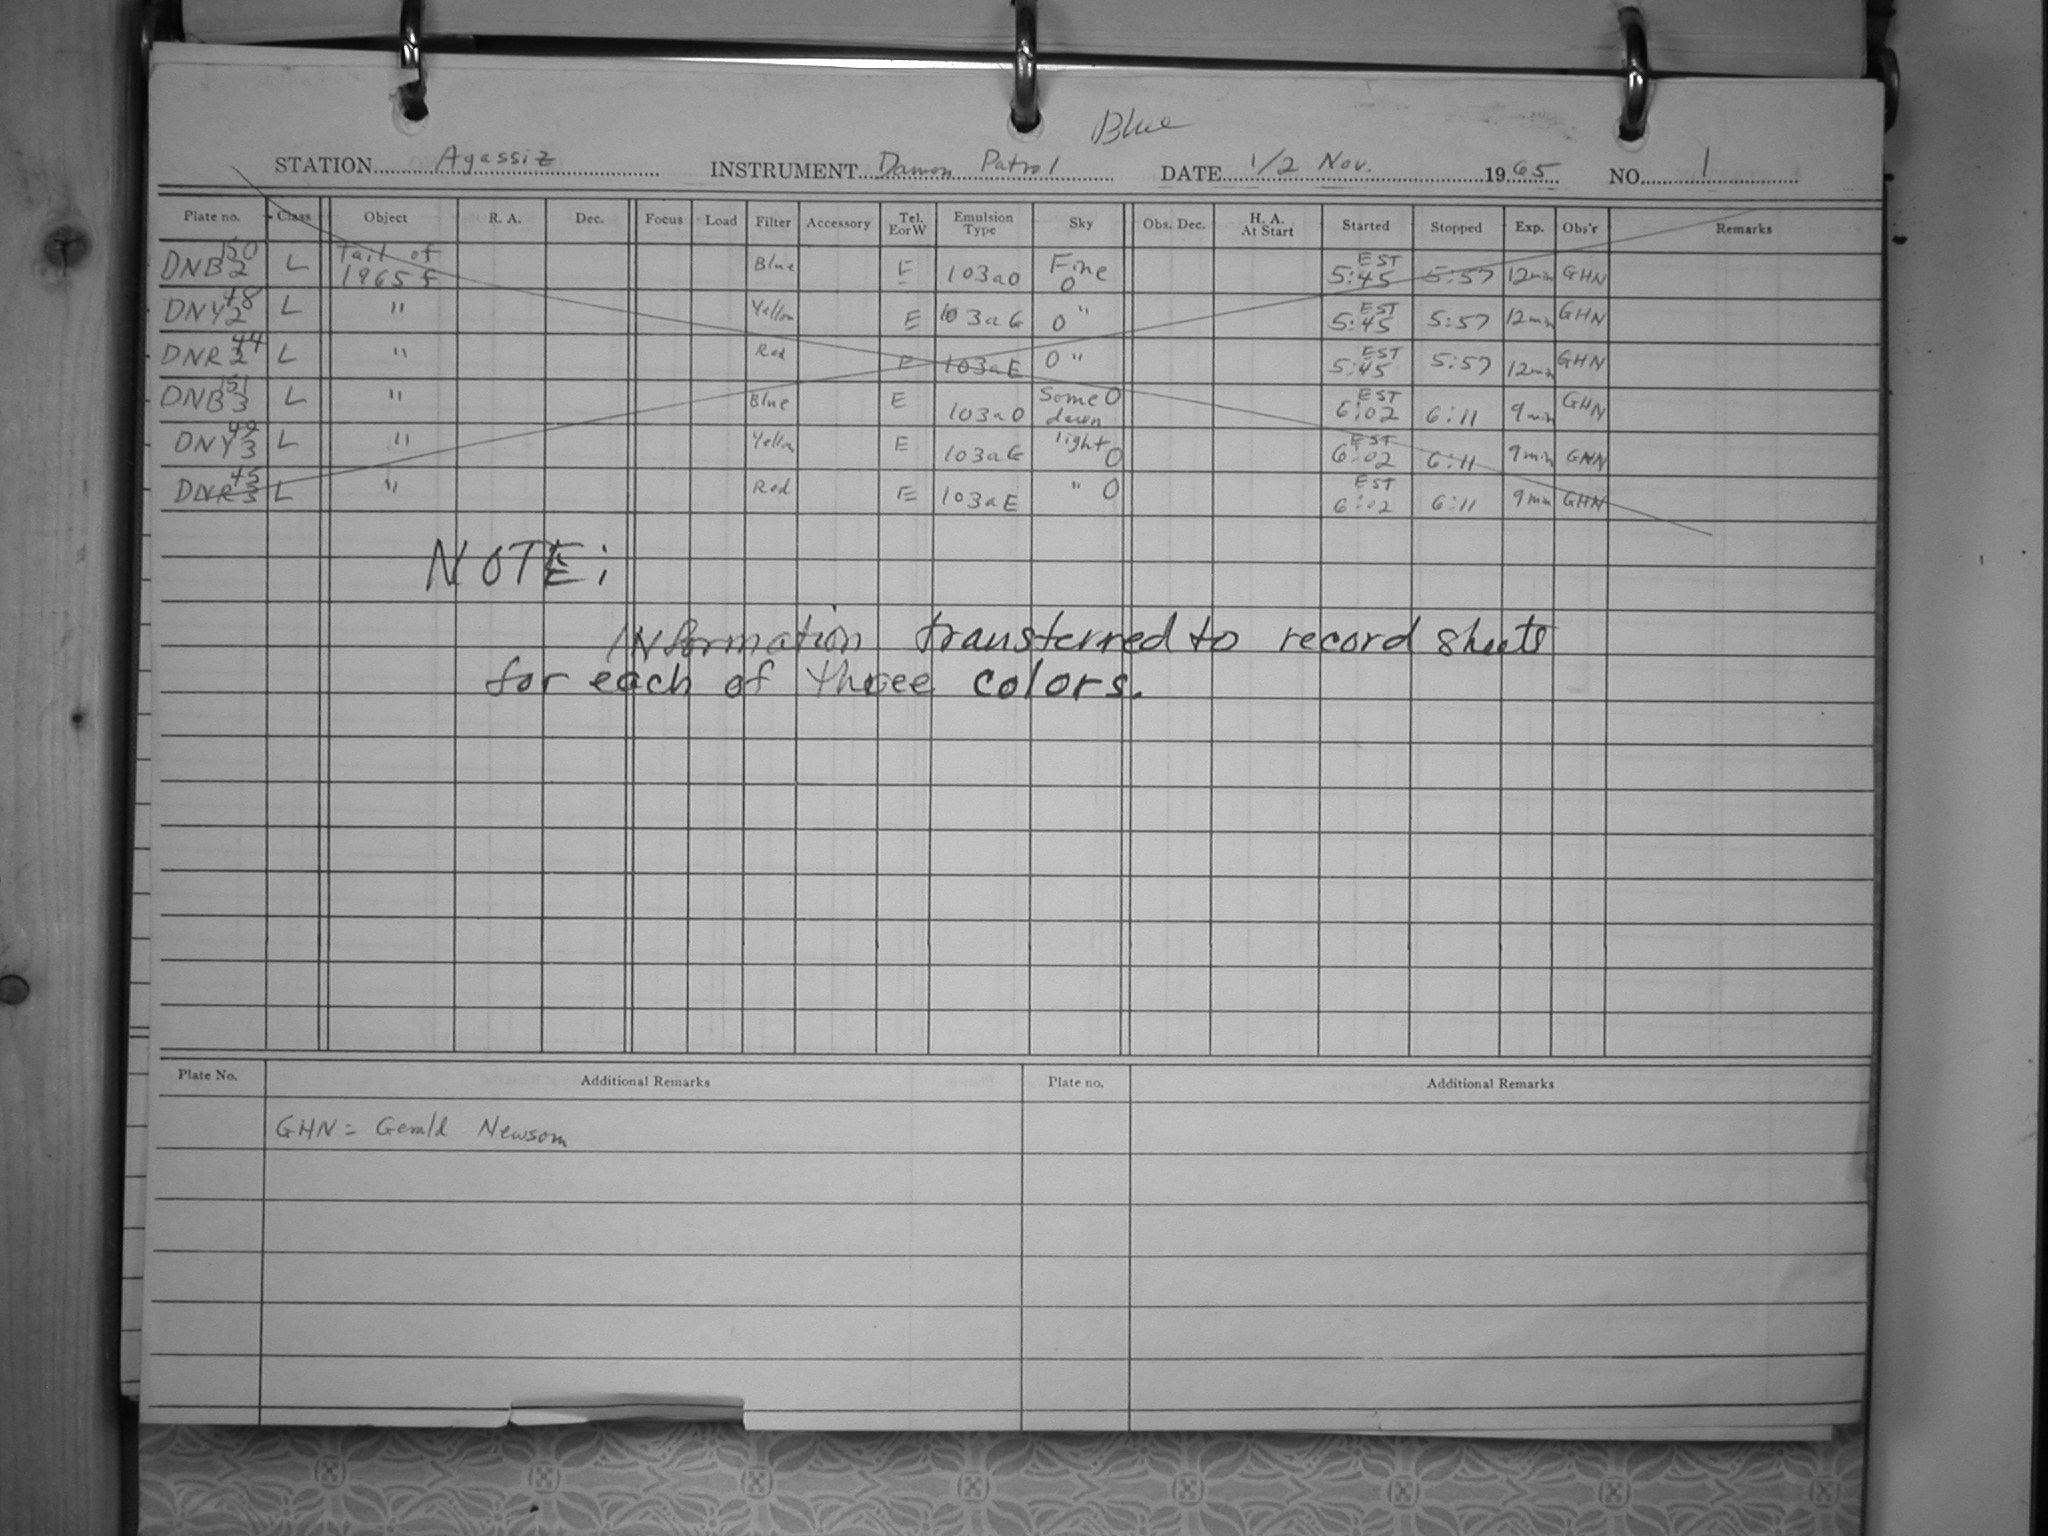 Blue
STATION Agassiz INSTRUMENT Damon Patrol DATE 1/2 Nov. 1965 NO. 1
Plate no. Class Object R. A. Dec. Focus Load Filter Accessory Tel. EorW Emulsion Type Sky Obs. Dec. H. A. At Start Started Stopped Exp. Obs'r Remarks
DNB 150 2 L Tail of 1965 f Blue E 103aO Fine 0 EST 5:45 5:57 12min GHN
DNY 48 2 L " Yellow E 103aG 0 " EST 5:45 5:57 12min GHN
DNR 44 2 L " Red E 103aE 0 " EST 5:45 5:57 12min GHN
DNB 151 3 L " Blue E 103aO Some 0 dawn EST 6:02 6:11 9min GHN
DNY 49 3 L " Yellow E 103aG light 0 EST 6:02 6:11 9min GHN
DNR 45 3 L " Red E 103aE " 0 EST 6:02 6:11 9min GHN
NOTE:
Information transferred to record sheets
for each of three colors.
Plate No. Additional Remarks Plate no. Additional Remarks
GHN = Gerald Newsom